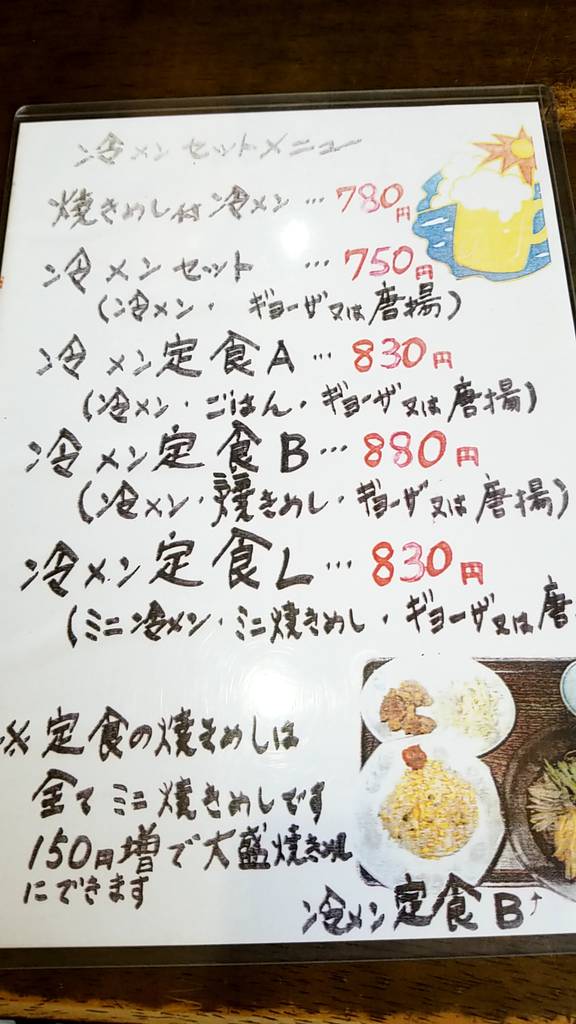 冷メンセットメニュー
焼きめし付冷メン…780円
冷メンセット …750円
(冷メン・ギョーザ又は唐揚)
冷メン定食A…830円
(冷メン・ごはん・ギョーザ又は唐揚)
冷メン定食B…880円
(冷メン・焼きめし・ギョーザ又は唐揚)
冷メン定食L…830円
(ミニ冷メン・ミニ焼きめし・ギョーザ又は唐
※定食の焼きめしは
全てミニ焼きめしです
150円増で大盛焼き飯
にできます
冷メン定食B↑